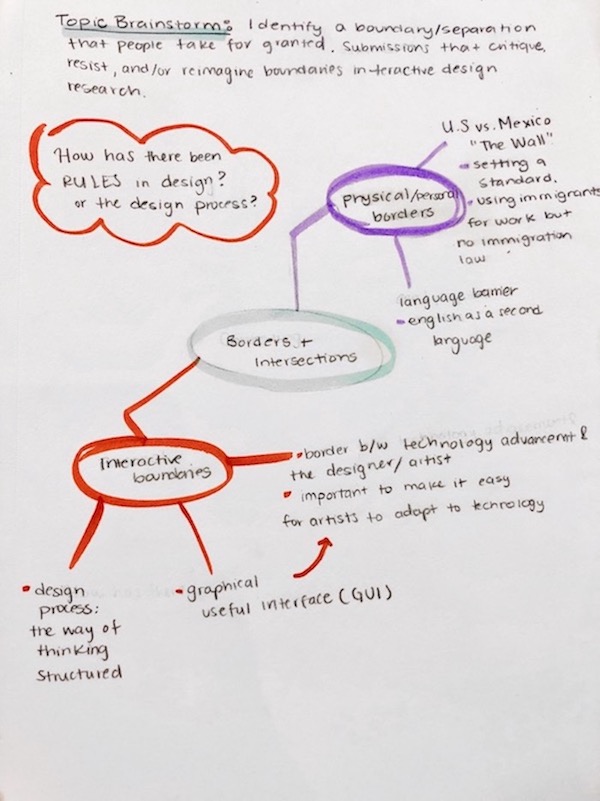 Topic Brainstorm: Identify a boundary/separation
that people take for granted. Submissions that critique,
resist, and/or reimagine boundaries interactive design
research.
How has there been
RULES in design?
or the design process?
U.S vs. Mexico
"The Wall"
setting a
standard.
using immigrants
for work but
no immigration
law
physical/personal
borders
language barrier
english as a second
language
Borders +
Intersections
Interactive
boundaries
border b/w technology advancemt &
the designer/artist
important to make it easy
for artists to adapt to technology
design
process:
the way of
thinking
structured
graphical
useful interface (GUI)